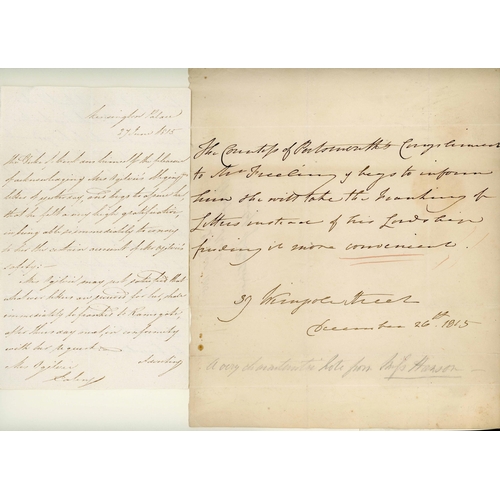 Kensington Palace
27 June 1815
himself the
of acknowledging Mrs Ogilvie's
letter of yesterday, and begs to assure her
that he felt a very high gratification
in being able immediately to convey
to her the certain account of Major Ogilvie's
safety.
Mrs Ogilvie may rest satisfied that
letters are for her, shall
immediately be forwarded to Ramsgate,
this day in conformity
with her request.
Mrs Ogilvie
The Countess of Portsmouth's Compliments
to Mr Freeling & begs to inform
him She will take the Franking of
Letters instead of his Lordship
finding it more convenient
39 Wimpole Street
December 26th 1815
A very characteristic Note from Miss Hanson